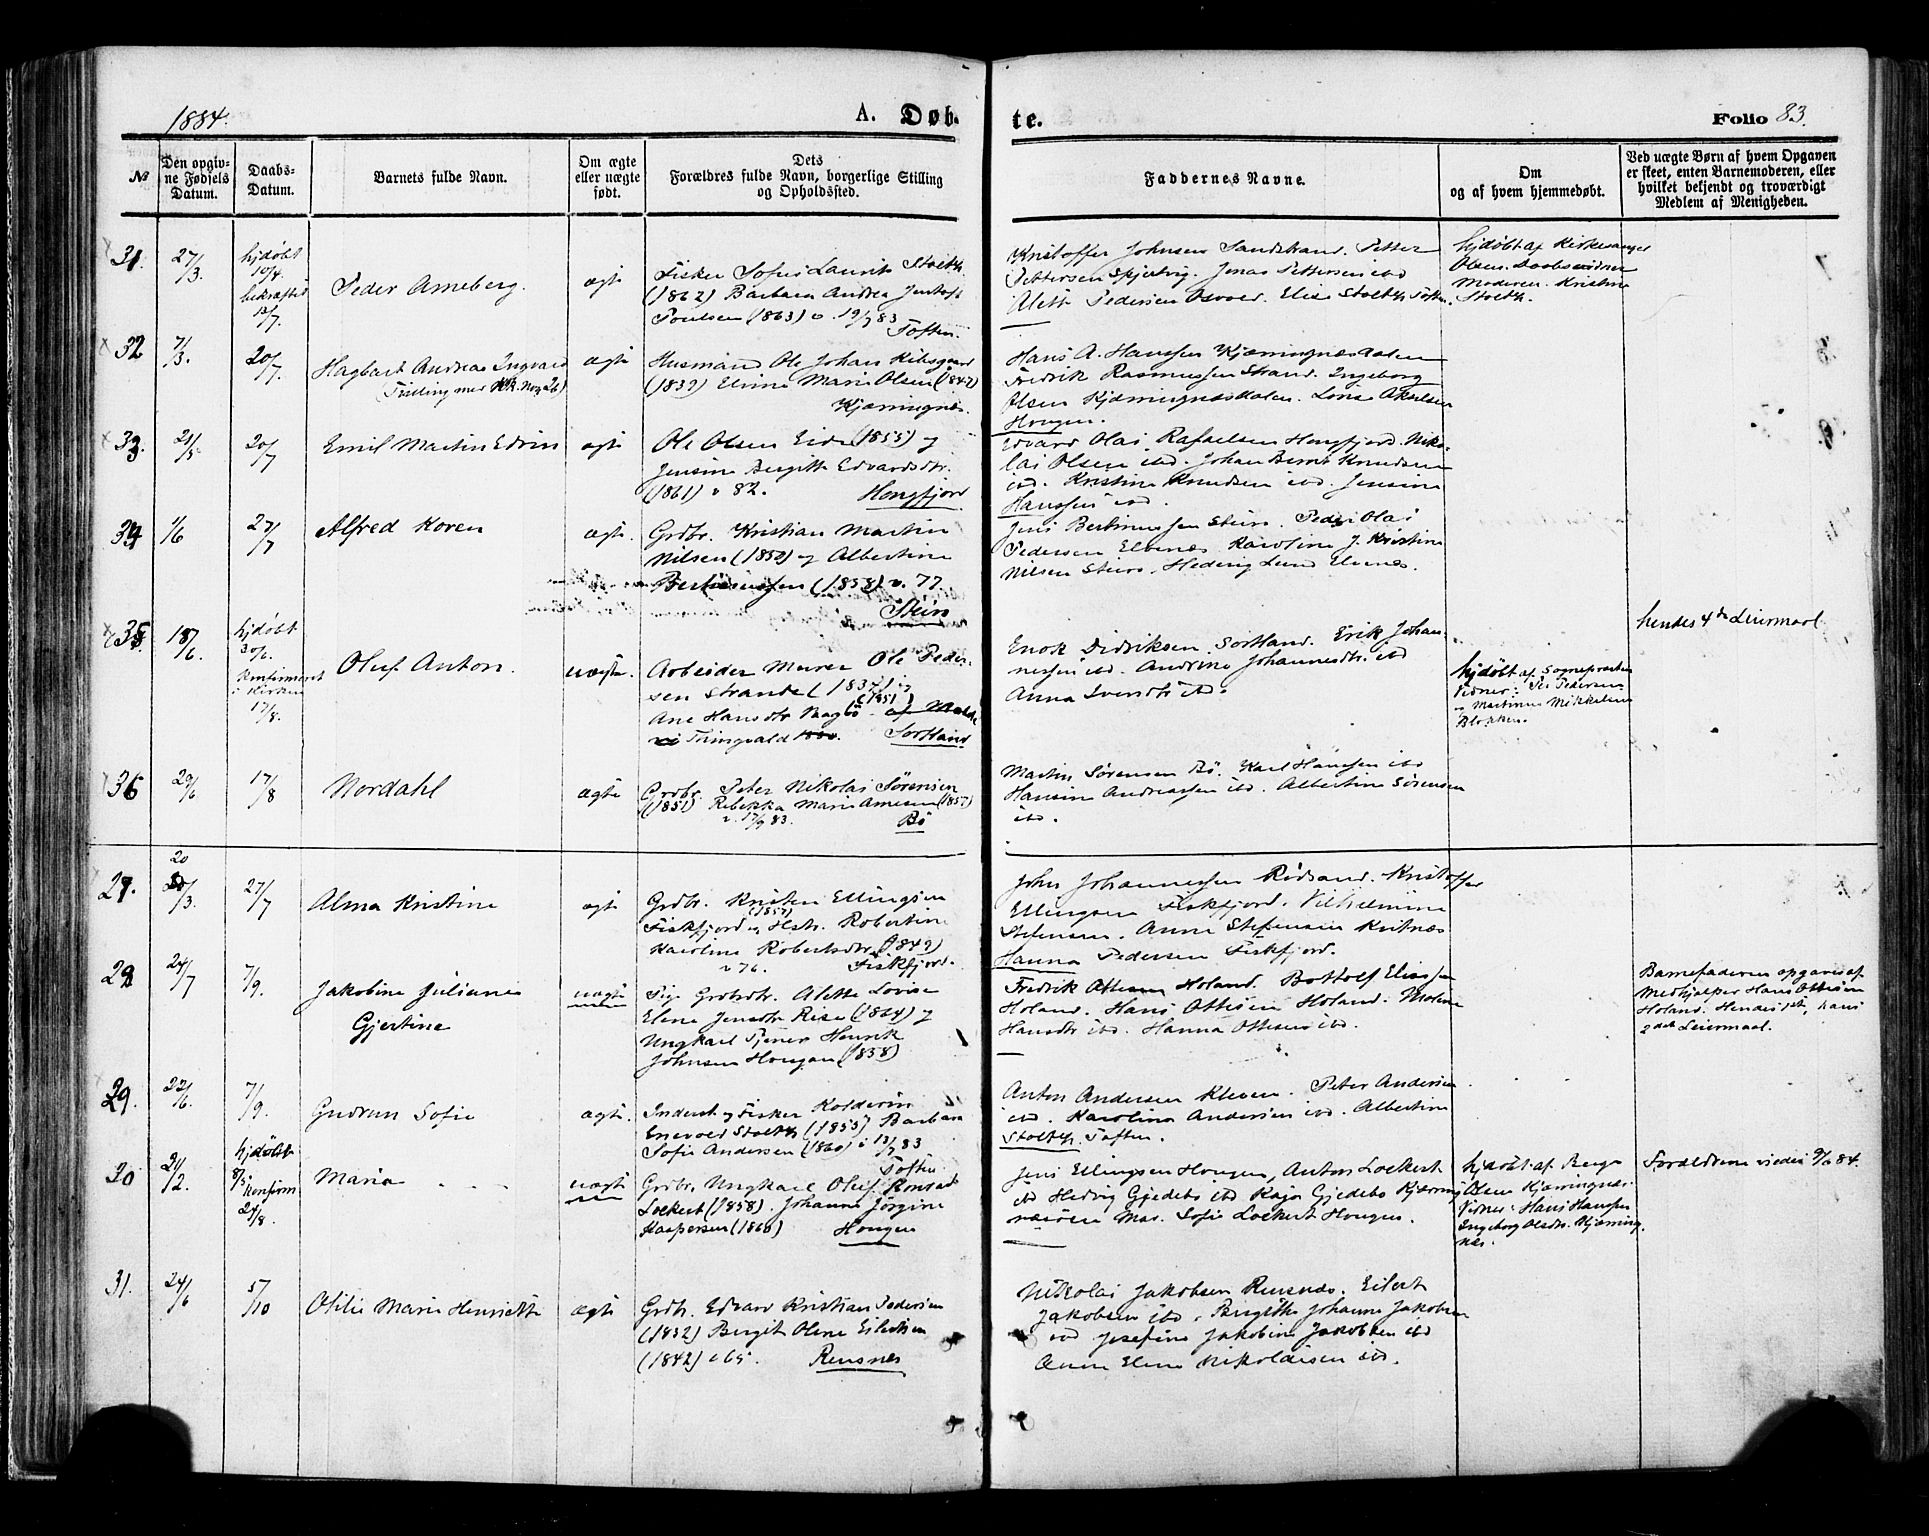 1884.
A. Døb-
te.
Folio 83.
№
Den opgiv-
ne Fødsels
Datum.
Daabs-
Datum.
Barnets fulde Navn.
Om ægte
eller uægte
født.
Dets
Forældres fulde Navn, borgerlige Stilling
og Opholdssted.
Faddernes Navne.
Om
og af hvem hjemmedøbt.
Ved uægte Børn af hvem Opgaven
er skeet, enten Barnemoderen, eller
hvilket bekjendt og troværdigt
Medlem af Menigheden.
31.
27/3.
hjdøbt
10/4.
bekræftet
13/7.
Peder Arneberg.
ægte
Fisker Sofus Laurits Stoltz
(1862) Barbara Andrea Jentoft
Poulsen (1863) v. 19/7 83
Toften.
Kristoffer Johnsen Sandstrand. Petter
Pettersen Spjutvig. Jonas Pettersen ibd
Alett Pedersen Osvold. Elise Stoltz Toften.
hjdøbt af Kirkesanger
Olsen. Daabsvidner
Moderen. Kristine
Stoltz.
32
7/3.
20/7.
Hagbart Andreas Ingvard
(Tvilling med No 26)
ægte
Husmand Ole Johan Kilsgaard
(1839) Eline Marie Olsen (1842)
Kjæringnes.
Hans A. Hanssen Kjæringnesdalen
Fredrik Rasmussen Strand. Ingeborg
Olsen Kjæringnesdalen. Lovise Akselsen
Hougen.
33.
21/5
20/7
Emil Martin Edvin
ægte
Ole Olsen Eide (1855) og
Jensine Bergitte Edvardsdtr.
(1861) v 82.
Hongfjord
Edvard Olai Rafaelsen Hongfjord. Niko-
lai Olsen ibd. Johan Bernt Knudsen
ibd. Kristine Knudsen ibd. Jensine
Hanssen ibd.
34
1/6
27/7
Alfred Koren
ægte.
Grdbr. Kristian Martin
Nilsen (1850) og Albertine
Bertinussen (1858) v. 77.
Steiro
Jens Bertinussen Steiro. Peder Olai
Pedersen Elvenæs. Karoline J. Kristine
Nilsen Steiro. Hedvig Lund Elvenes.
35.
18/6.
hjdøbt
30/6.
Konfirmeret
i Kirken
17/8.
Oluf Anton.
uægte.
Arbeider Murer Ole Peder-
sen Strande (1837) og
Ane Hansdtr Vagbø (1851) af Molde
Tringvald
Sortland
Enok Didriksen Sortland. Erik Johan-
nessen ibd. Andrine Johannesdtr. ibd
Anna Ivensdtr ibd.
hjdøbt af Sognepræsten
Vidner: Per Pedersen
og Martinus Mikkelsen
Blokken.
hendes 4de Leiermaal
36
29/6
17/8
Nordahl
ægte
Grdbr. Peter Nikolai Sørensen
(1851) Rebekka Marie Arnesen (1857)
v. 17/9 83.
Bø
Martin Sørensen Bø. Karl Hansen ibd
Hansine Andreassen ibd. Albertine Sørensen
ibd.
27.
20
20/3.
27/7
Alma Kristine
ægte
Grdbr. Kristen Ellingsen
(1857)
Fiskfjord og Hstr. Robertine
Karoline Robertsdtr. (1849)
v 76.
Fiskfjord.
John Johannessen Rødsand. Kristoffer
Ellingsen Fiskfjord. Vilhelmine
Stefensen. Anne Stefensen Kvitnes
Hanna Pedersen Fiskfjord.
28
24/7
7/9.
Jakobine Juliane
Gjertine
uægte
Pige Grdbrdtr. Alette Lovise
Elene Jensdtr Rise (1864) og
Ungkarl Tjener Henrik
Johnsen Hougan (1858)
Fredrik Ottesen Holand. Bottolf Eliassen
Holand. Hans Ottesen Holand. Maline
Hansdtr ibd. Hanna Ottesen ibd.
Barnefaderen opgives af
Medhjælper Hans Ottesen
Holand. Hendes 1ste, hans
2det Leiermaal.
29.
22/6.
7/9.
Gudrun Sofie
ægte.
Inderst og Fisker Kolderin
Enevold Stoltz (1855) Barbara
Sofie Andersen (1860) v 13/7 83
Toften
Anton Andersen Kleven. Peter Andersen
ibd. Karolina Andersen ibd. Albertine
Stoltz. Toften.
30
21/2.
hjdøbt
8/5.
Konfirm
24/8.
Maria
uægte
Grdbr. Ungkarl Oluf Konrad
Lockert (1858). Johanne Jørgine
Kaspersen (1860)
Hougen
Jens Ellingsen Hougen, Anton Lockert
ibd Hedvig Gjedebo ibd Kaja Gjedebo Kjæring-
nesøren Mar. Sofie Lockert Hougen.
hjdøbt af Berge
Olsen Kjæringnæs.
Vidner: Hans Hanssen
Ingeborg Olsdtr. Kjæring-
næs.
Forældrene viedes 9/6 84.
31.
24/6
5/10
Otilie Marie Henriette
ægte
Grdbr. Edvard Kristian Pedersen
(1832) Bergit Oline Eilertsen
(1842) v 65.
Reusnes
Nikolai Jakobsen Reusnes. Eilert
Jakobsen ibd. Bergitte Johanne Jakobsen
ibd Josefine Jakobine Jakobsen ibd
Anne Elene Nikolaisen ibd.